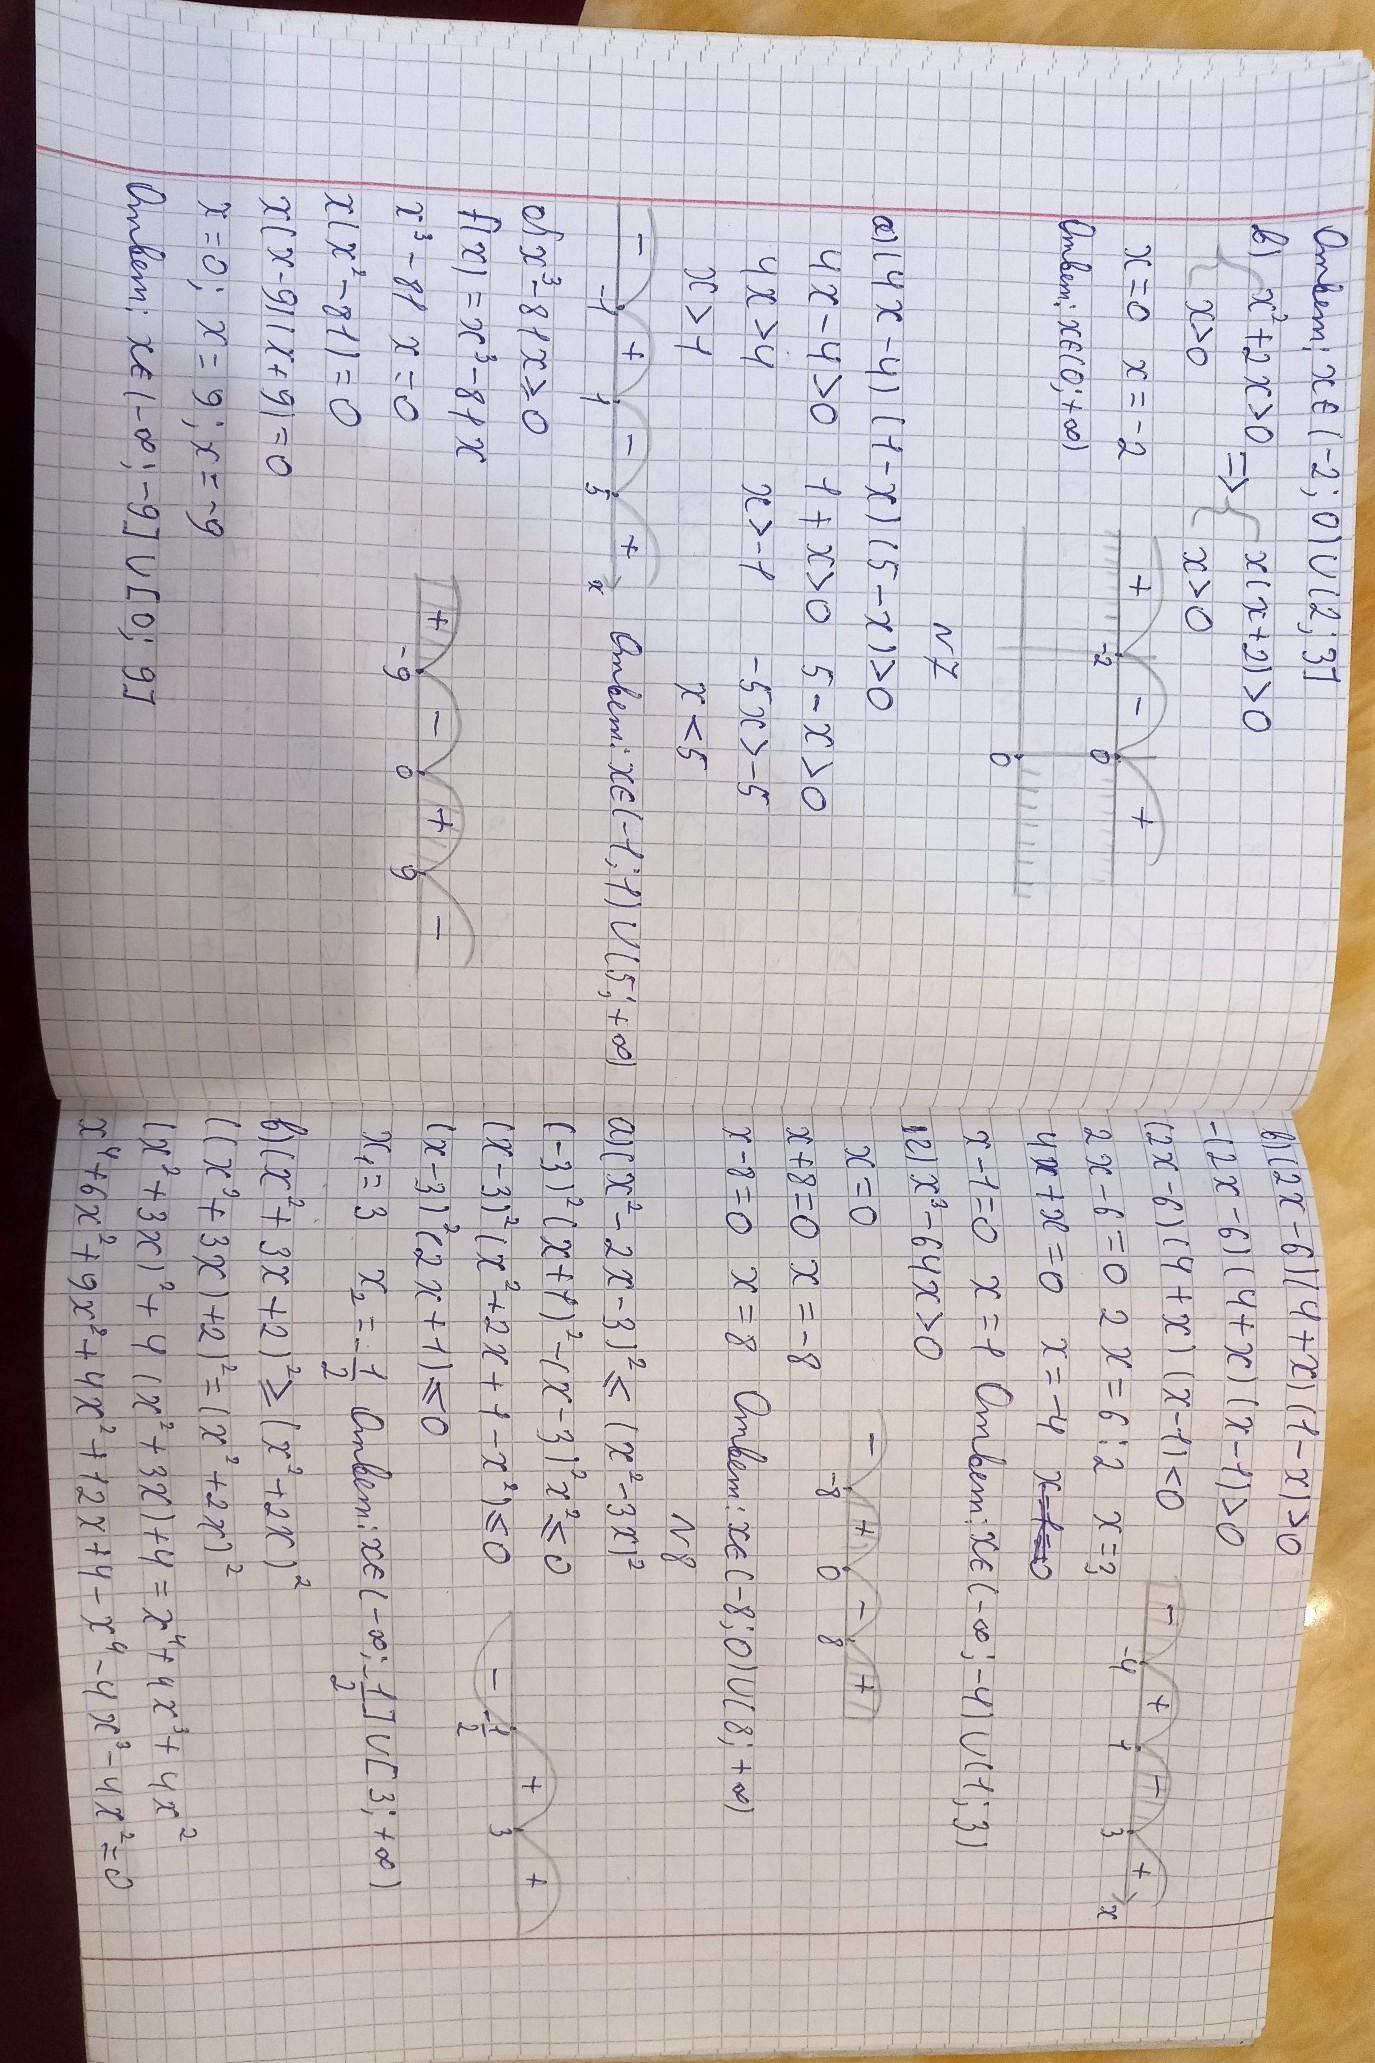 Ответ: x∈(-2;0)∪(2;3]
в) { x²+2x>0 ⇒ { x(x+2)>0
x>0 x>0
x=0 x=-2
+ - +
-2 0
0
Ответ: x∈(0;+∞)
N7
а) (4x-4)(1-x)(5-x)>0
4x-4>0 1+x>0 5-x>0
4x>4 x>-1 -5x>-5
x>1 x<5
- + - +
-1 1 5 x
Ответ: x∈(-1;1)∪(5;+∞)
б) x³-81x≥0
f(x)=x³-81x
x³-81x=0
x(x²-81)=0
x(x-9)(x+9)=0
x=0; x=9; x=-9
+ - + -
-9 0 9
Ответ: x∈(-∞;-9]∪[0;9]
в) (2x-6)(4+x)(1-x)>0
-(2x-6)(4+x)(x-1)>0
(2x-6)(4+x)(x-1)<0
2x-6=0 2x=6:2 x=3
4x+x=0 x=-4
x-1=0 x=1
- + - +
-4 1 3 x
Ответ: x∈(-∞;-4)∪(1;3)
г) x³-64x>0
x=0
x+8=0 x=-8
x-8=0 x=8
- + - +
-8 0 8
Ответ: x∈(-8;0)∪(8;+∞)
N8
а) (x²-2x-3)²≤(x²-3x)²
(-3)²(x+1)²-(x-3)²x²≤0
(x-3)²(x²+2x+1-x²)≤0
(x-3)²(2x+1)≤0
x₁=3 x₂=-1/2
- + +
-1/2 3
Ответ: x∈(-∞;-1/2]∪[3;+∞)
в) (x²+3x+2)²≥(x²+2x)²
((x²+3x)+2)²=(x²+2x)²
(x²+3x)²+4(x²+3x)+4=x⁴+4x³+4x²
x⁴+6x²+9x²+4x²+12x+4-x⁴-4x³-4x²=0